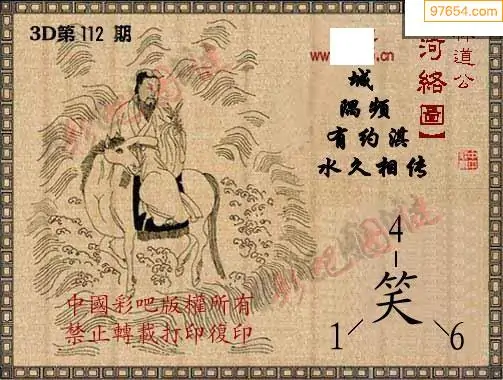 97654.com
3D第 112 期
www.
.cn
道公
河絡圖】
城
隅頻
有约淇
水久相传
彩吧图迷
4
笑
1 6
中國彩吧版權所有
禁止轉載打印復印